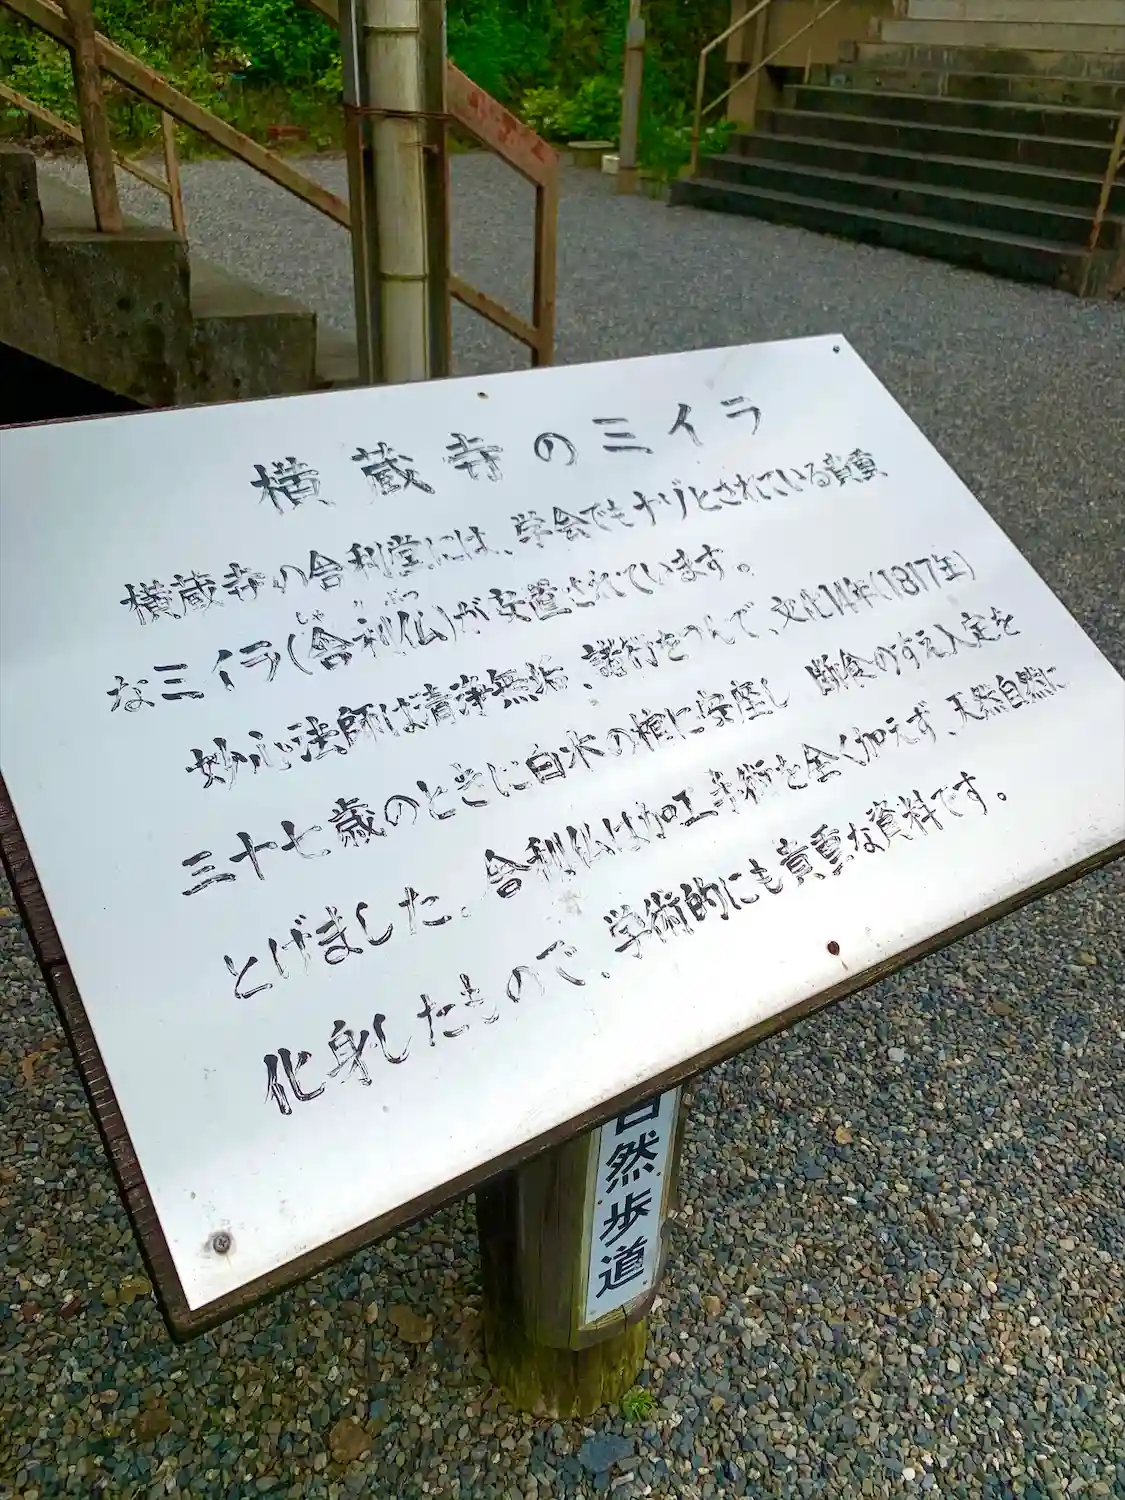 横蔵寺のミイラ
横蔵寺の舎利堂には、学会でもナゾとされている貴重
なミイラ(舎利仏)が安置されています。
しゃりぶつ
妙心法師は清浄無垢、諸行をつんで、文化14年(1817年)
三十七歳のときに白木の棺に安座し 断食のすえ入定を
とげました。舎利仏は加工手術を全く加えず、天然自然に
化身したもので、学術的にも貴重な資料です。
自然歩道